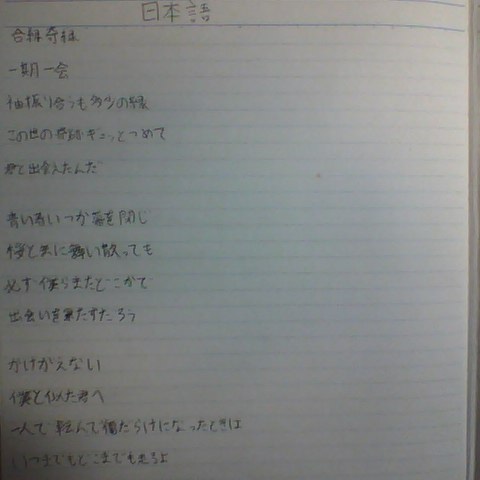 日本語
合縁奇縁
一期一会
袖振り合うも多少の縁
この世の奇跡ぎゅっとつめて
君と出会えたんだ
青い春いつか幕を閉じ
桜と共に舞い散っても
必ず僕らまたどこかで
出会いを果たすだろう
かけがえない
僕と似た君へ
一人で転んで傷だらけになったときは
いつまでもどこまでも走るよ